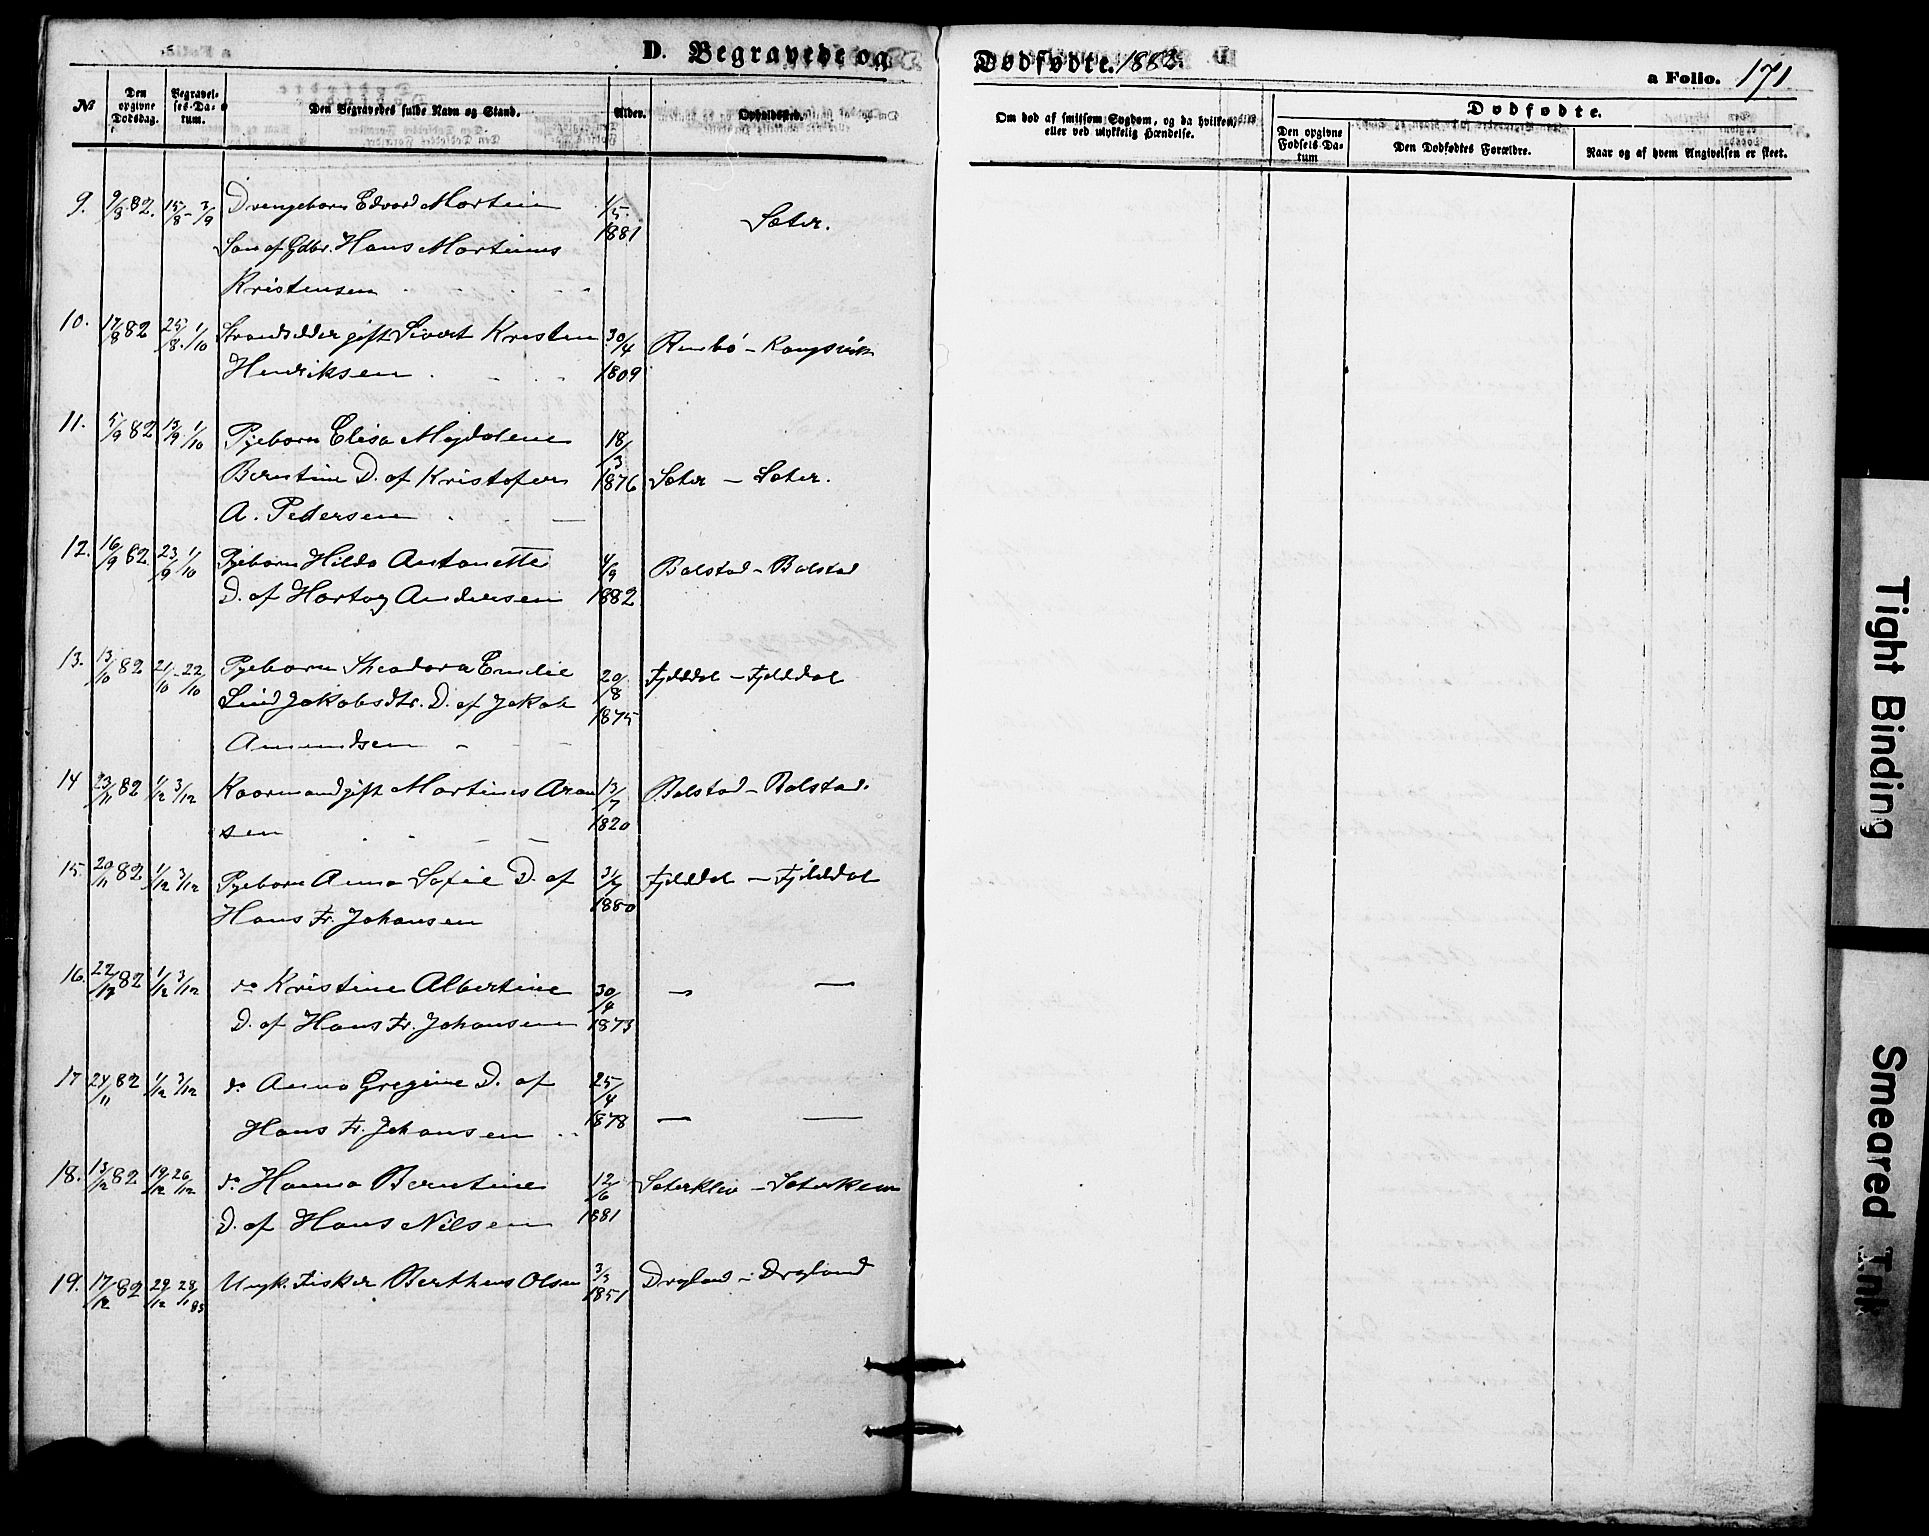 D. Begravede og Dødfødte. 1882.
a Folio. 171.
№
Den opgivne Dødsdag.
Begravelses-Datum.
Den Begravedes fulde Navn og Stand.
Alder.
Opholdssted.
Om død af smitsom Sygdom, og da hvilken, eller ved ulykkelig Hændelse.
Dødfødte.
Den opgivne Fødsels-Datum
Den Dødfødtes Forældre.
Naar og af hvem Angivelsen er skeet.
9. 9/8 82. 15/8 - 3/9 Drengebarn Edvard Martin 1/5 1881 Sæter.
Søn af Gdbr. Hans Martinus
Kristensen
10. 17/8 82 25/8. 1/10 Strandsidder gift Sivert Kristen 30/4 1809
Henriksen
11. 5/9 82 13/9 1/10 Pigebarn Elisa Magdalene 18/3 1876 Sæter - Sæter.
Berntine D. af Kristofer
A. Pedersen
12. 16/9 82. 23/9 1/10 Pigebarn Hilda Antonette 4/9 1882 Balstad - Balstad
D. af Hartvig Andersen
13. 13/10 82 21/10 - 22/10 Pigebarn Theodora Emelie 20/8 1875 Fjelddal - Fjelddal
Lind Jakobsdtr. D. af Jakob
Amundsen
14 23/11 82 1/12 3/12 Kaarmand gift Martinus Aron 13/7 1820 Balstad - Balstad.
sen
15. 20/11 82 1/12 3/12 Pigebarn Anna Sofie D. af 3/7 1880 Fjelddal - Fjelddal
Hans Fr. Johansen
16. 22/11 82 1/12 3/12 do Kristine Albertine 30/4 1873 — —
D. af Hans Fr. Johansen
17 24/11 82 1/12 3/12 do Anna Gregine D. af 25/4 1878 — —
Hans Fr. Johansen
18. 13/12 82 19/12 26/12 do Hanna Berntine 12/6 1881 Sæterklev -
D. af Hans Nilsen
19. 17/12 82 29/12 28/1 83 Ungk. Fisker Bertheus Olsen 3/3 1851 Drgland - Drgland
Tight Binding
Smeared Ink